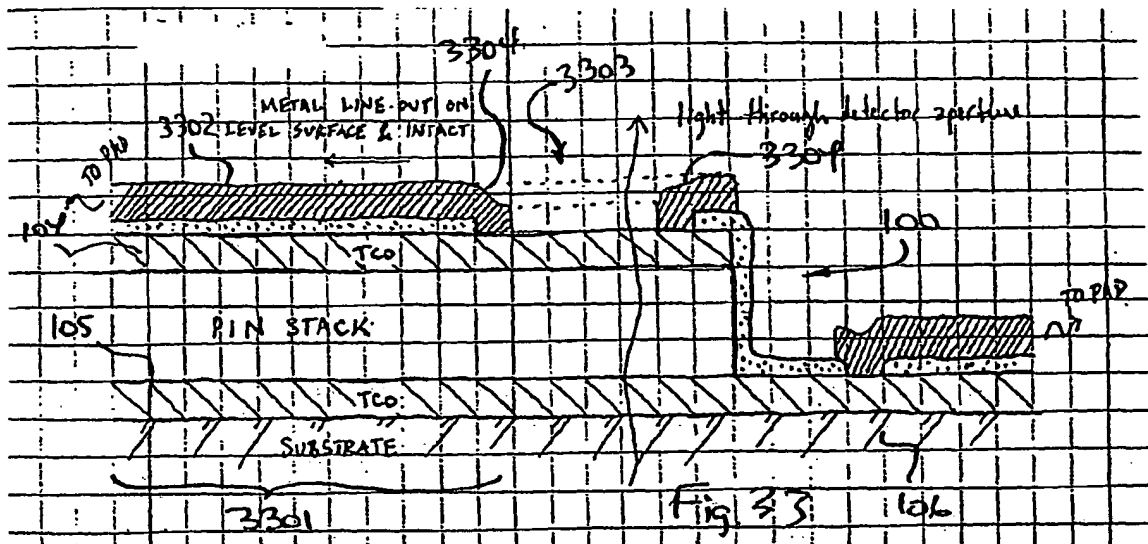 3304
3303
METAL LINE-OUT ON
3302 LEVEL SURFACE & INTACT
light through detector aperture
3304
TO PAD
104
TCO
100
TO PAD
105
PIN STACK
TCO
SUBSTRATE
3301
Fig 33
106